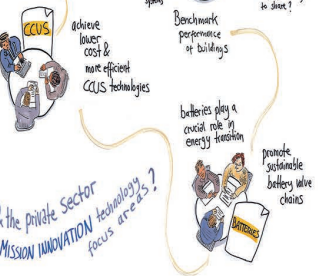 systems
to share?
CCUS
achieve
lower
cost &
more efficient
CCUS technologies
Benchmark
performance
of buildings
batteries play a
crucial role in
energy transition
promote
sustainable
battery value
chains
BATTERIES
the private sector
MISSION INNOVATION technology
focus areas?